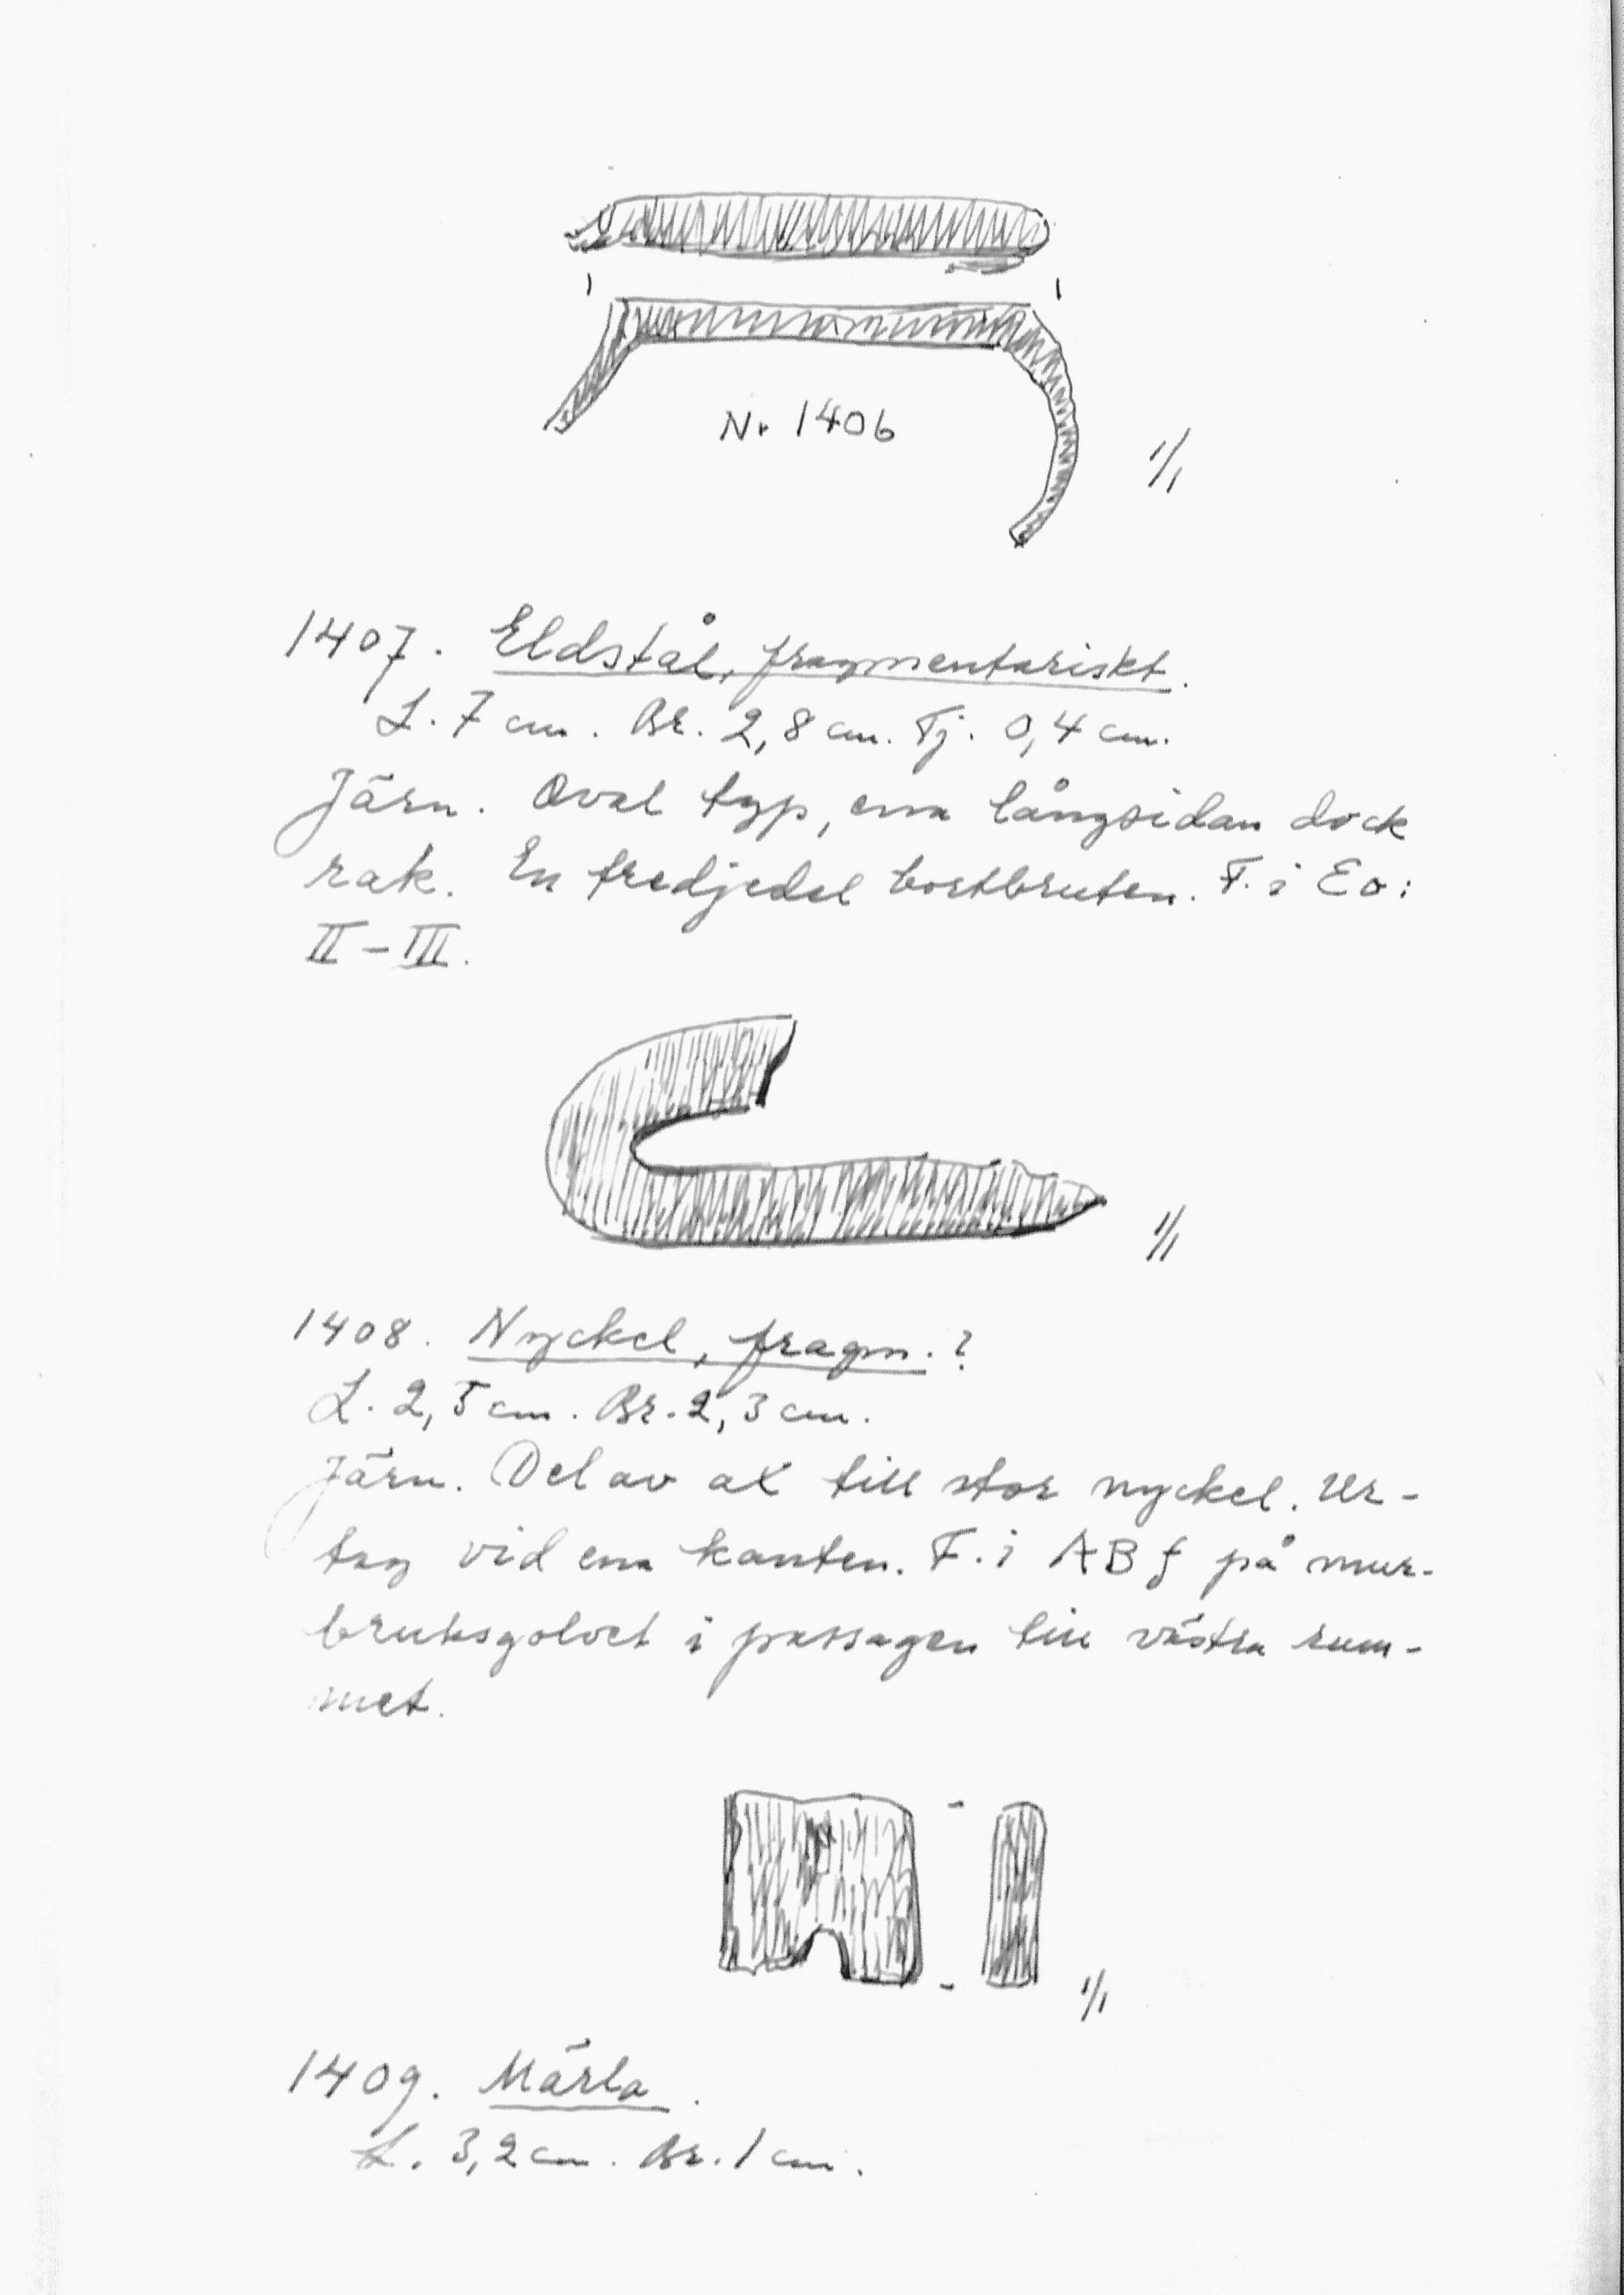 Nr 1406
1/1
1407. Eldstål, fragmentariskt.
L. 7 cm. Br. 2,8 cm. Tj. 0,4 cm.
Järn. Oval typ, ena långsidan dock
rak. En tredjedel bortbruten. F. i Eo:
II – III.
1/1
1408. Nyckel, fragm.?
L. 2,5 cm. Br. 2,3 cm.
Järn. Del av ax till stor nyckel. Ur-
tag vid ena kanten. F. i ABf på mur-
bruksgolvet i passagen till västra rum-
met.
1/1
1409. Märla.
L. 3,2 cm. Br. 1 cm.